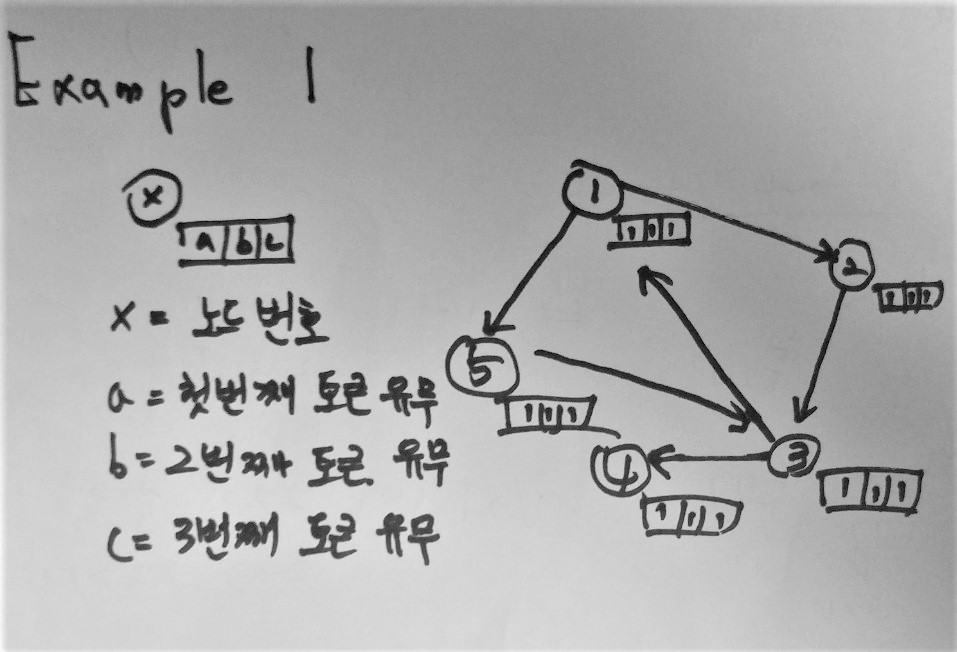 Example 1
x
a b c
x = 노드 번호
a = 첫번째 토큰 유무
b = 2번째 토큰 유무
c = 3번째 토큰 유무
1
1 1 1
2
1 1 1
5
1 1 1
4
1 1 1
3
1 1 1